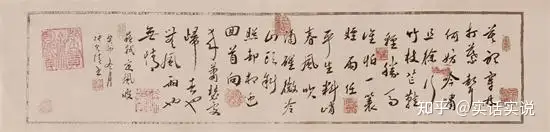 莫聽穿林
打葉聲
何妨吟嘯
且徐行
竹杖芒鞋
輕勝馬
誰怕一蓑
煙雨任
平生料峭
春風吹
酒醒微冷
山頭斜
照却相迎
回首向
來蕭瑟處
歸去也
無風雨也
無晴
蘇軾定風波
癸卯冬月
知乎 @实话实说